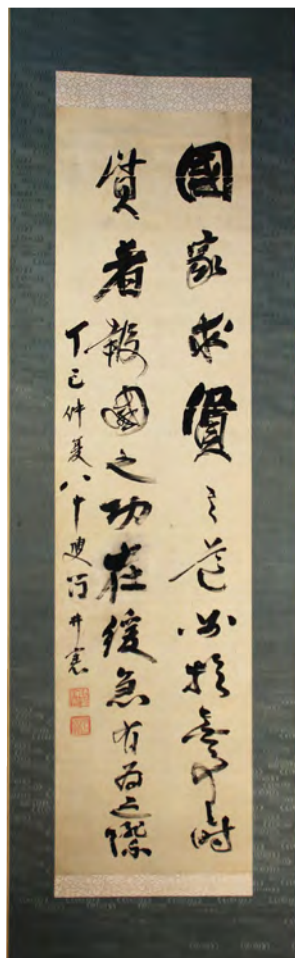 國家求賢之道必於無事時
賢者報國之功在緩急有為之際
丁巳仲夏八十叟